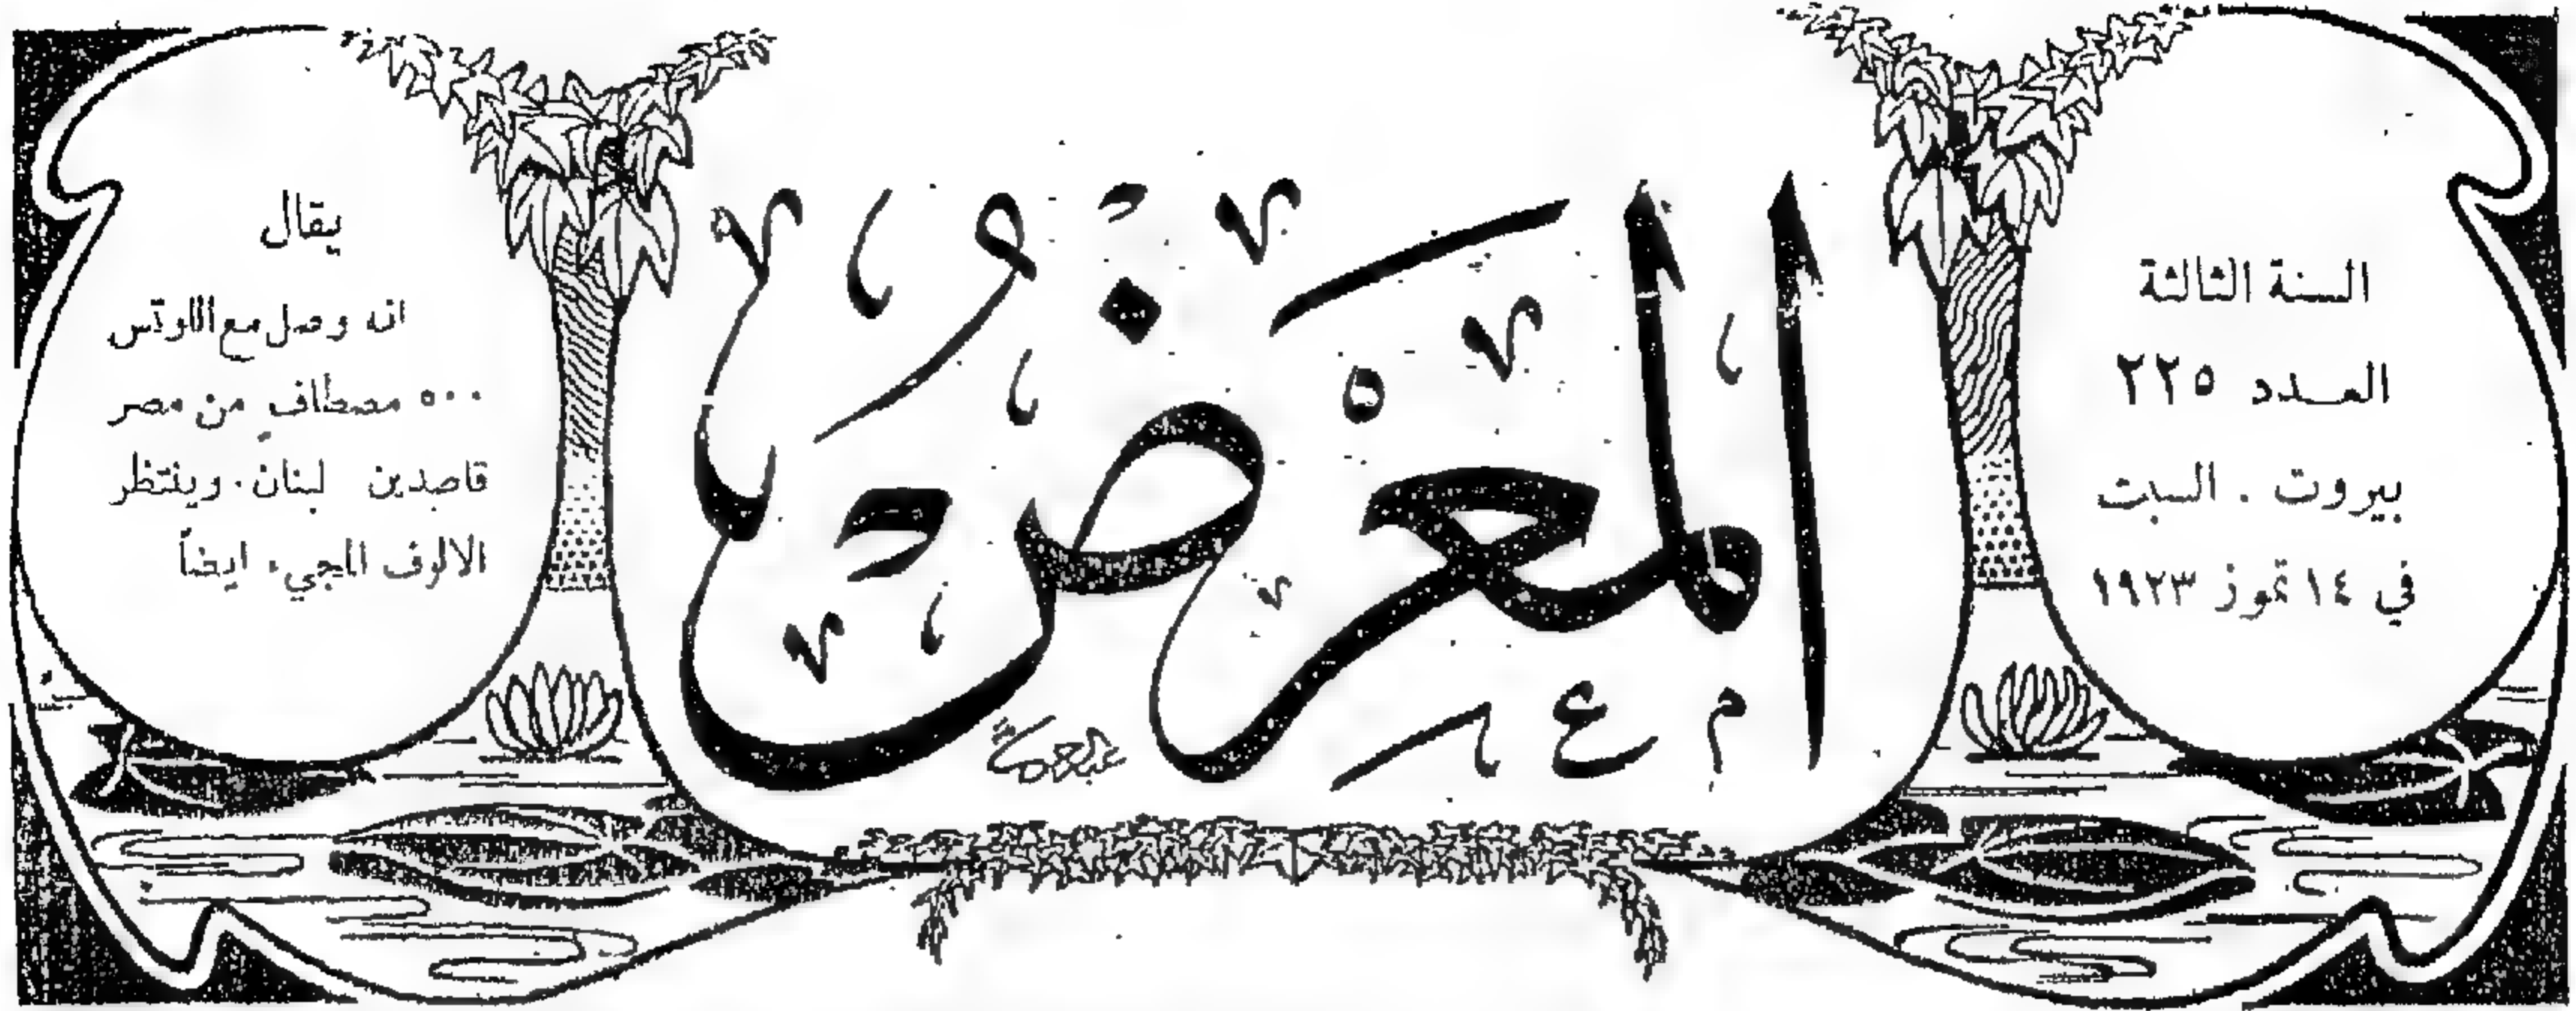 السنة الثالثة
العدد ٢٢٥
بيروت . السبت
في ١٤ تموز ١٩٢٣
المعرض
يقال
انه وصل مع اللوتس
٥٠٠ مصطاف من مصر
قاصدين لبنان. وينتظر
الالوف المجيء ايضاً